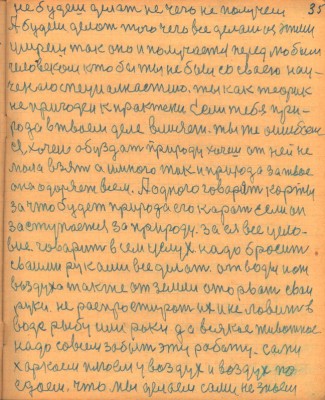 35
не будем делат не чего не получем
Я будем делат того чего все делают и с этим
умрем так оно и получается перед любым
человеком кто бы ты не был со своею нау-
чен ты как теорик
не пригоден к практеки Если тебя при-
рода в твоем деле ты же ошибаеш
ся хочеш обуздат природу хочеш от ней не
мала взят а много так и природа за твое
она одоряет всем. Ладно говорят
за что будет природа его карат если он
заступается за природу. За ея все цело-
вие говорит в сем целух надо бросит
своими руками все делат от воды и от
воздуха также от земли оторват свои
руки. не распростират их и не ловит в
воде рыбу или раки да всякое животное
надо совсем забыт эту работу. сами
харкаем плюем у воздух и воздух по
едаем. что мы делаем сами не знаем